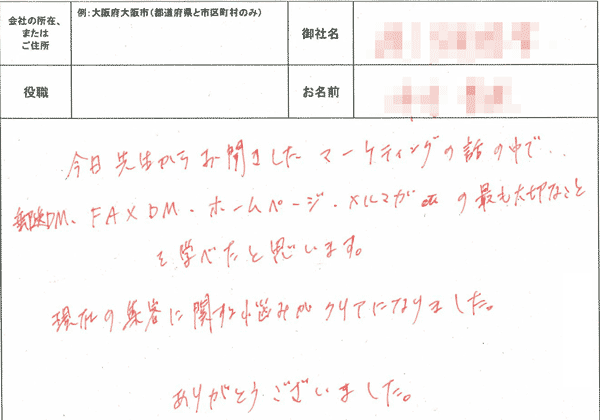 会社の所在、
または
ご住所
例:大阪府大阪市(都道府県と市区町村のみ)
御社名
役職
お名前
今日先生からお聞きしたマーケティングの話の中で、
郵送DM、FAXDM・ホームページ・メルマガetcの最も大切なこと
を学べたと思います。
現在の集客に関する悩みがクリアになりました。
ありがとうございました。